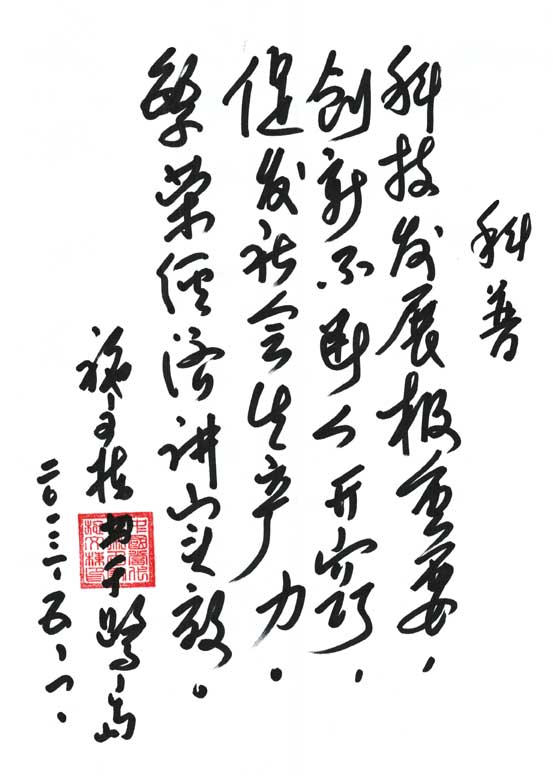 科普
科技发展极重要，
创新不断人开窍，
促发社会生产力。
繁荣经济讲实效。
于青岛
二〇一三、五、一、